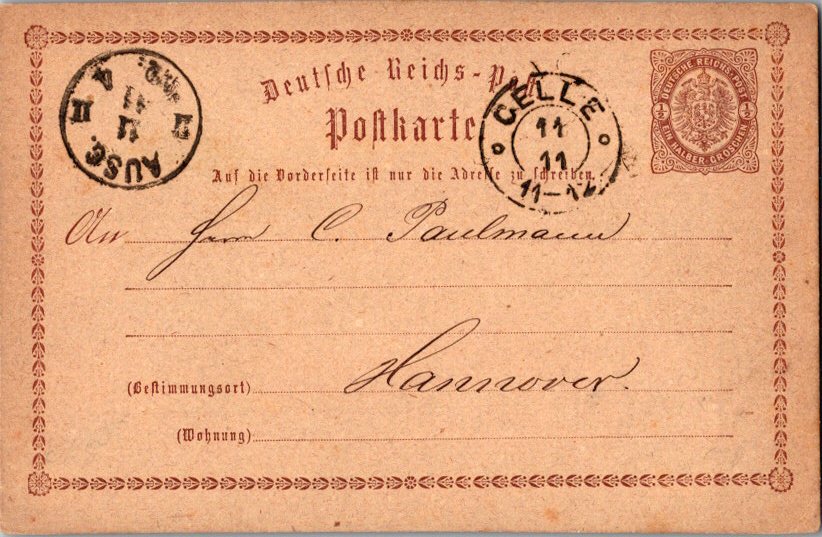 Deutsche Reichs-Post
Postkarte
Auf die Vorderseite ist nur die Adresse zu schreiben.
DEUTSCHE REICHS-POST
1/2
1/2
EIN HALBER GROSCHEN
CELLE
11
11
11-12
AUSG.
11
11
II
An Herrn C. Paulmann
Hannover.
(Bestimmungsort)
(Wohnung)